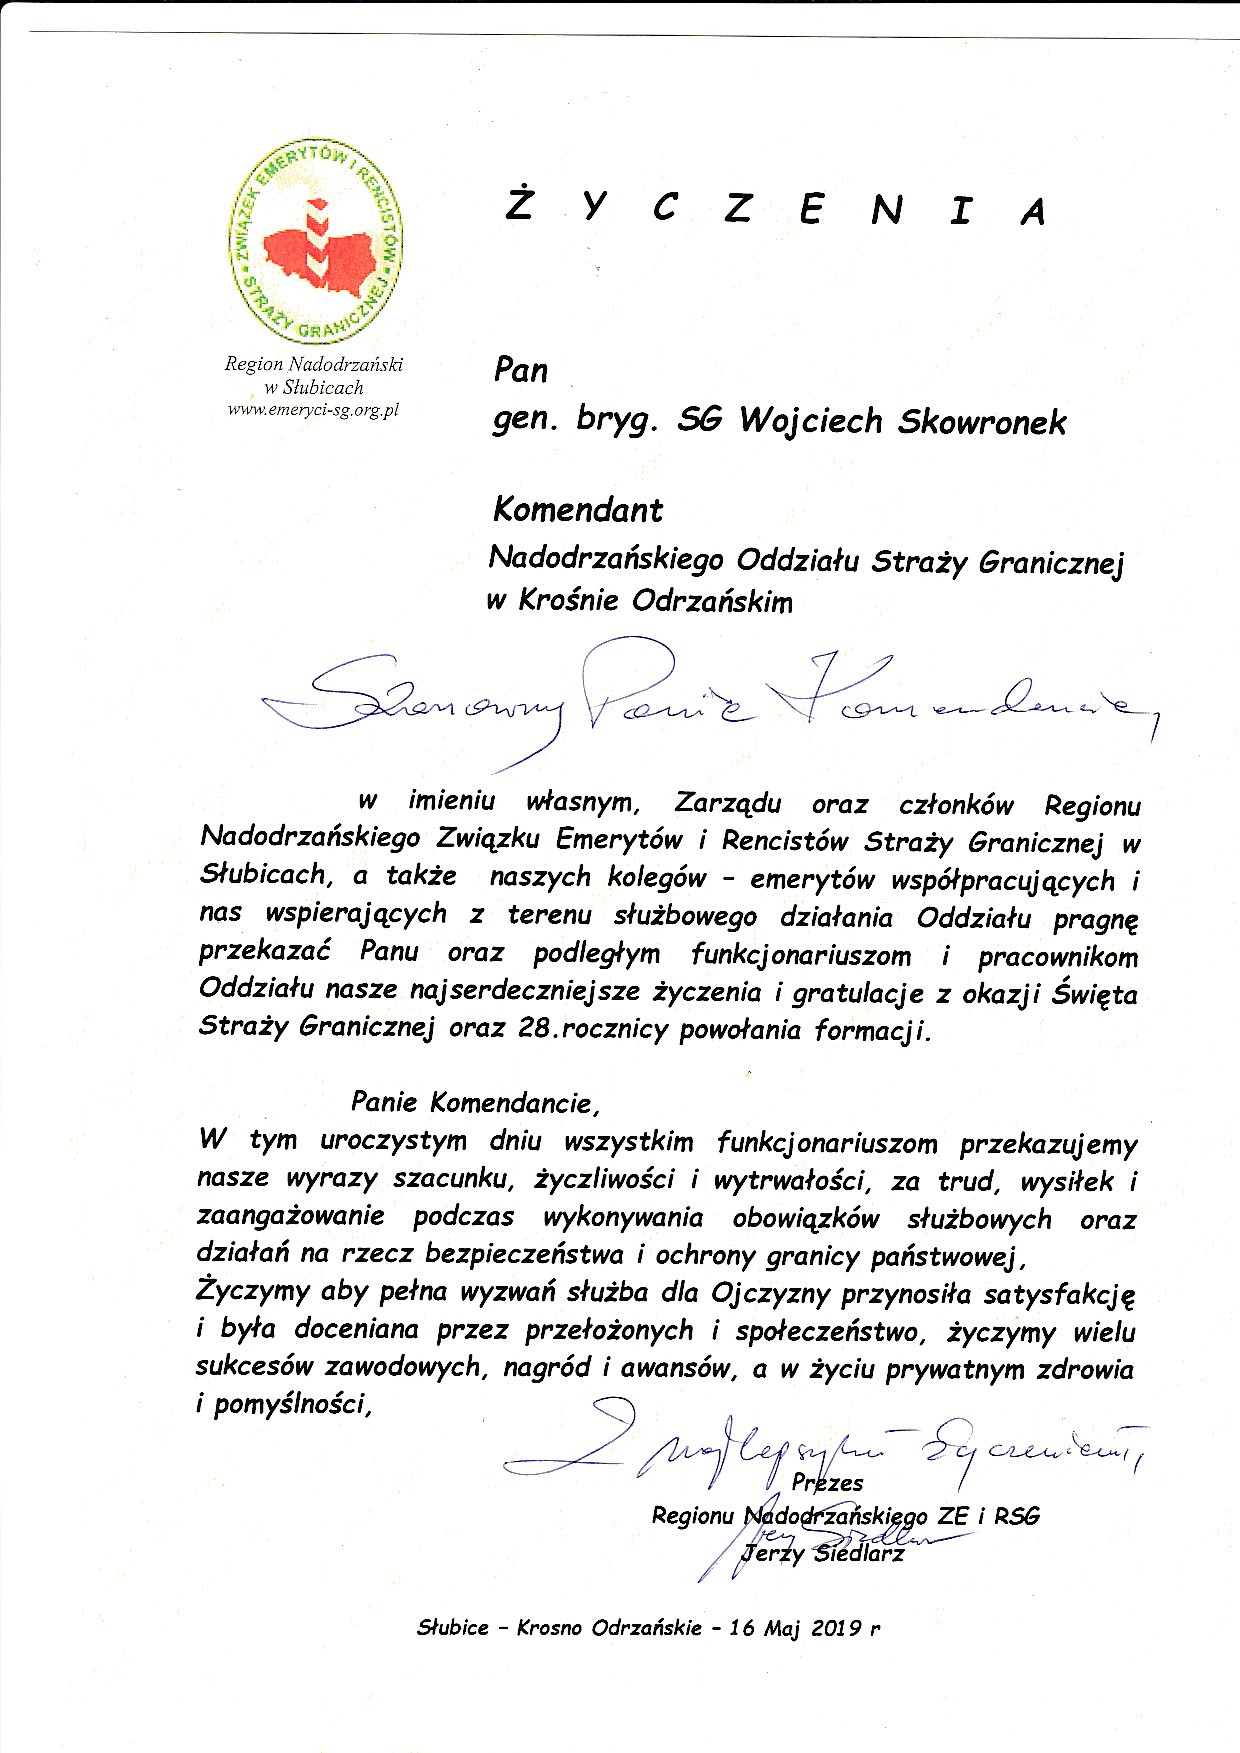 ZWIĄZEK EMERYTÓW I RENCISTÓW
STRAŻY GRANICZNEJ
Region Nadodrzański
w Słubicach
www.emeryci-sg.org.pl
ŻYCZENIA
Pan
gen. bryg. SG Wojciech Skowronek
Komendant
Nadodrzańskiego Oddziału Straży Granicznej
w Krośnie Odrzańskim
Szanowny Panie Komendancie,
w imieniu własnym, Zarządu oraz członków Regionu
Nadodrzańskiego Związku Emerytów i Rencistów Straży Granicznej w
Słubicach, a także naszych kolegów – emerytów współpracujących i
nas wspierających z terenu służbowego działania Oddziału pragnę
przekazać Panu oraz podległym funkcjonariuszom i pracownikom
Oddziału nasze najserdeczniejsze życzenia i gratulacje z okazji Święta
Straży Granicznej oraz 28.rocznicy powołania formacji.
Panie Komendancie,
W tym uroczystym dniu wszystkim funkcjonariuszom przekazujemy
nasze wyrazy szacunku, życzliwości i wytrwałości, za trud, wysiłek i
zaangażowanie podczas wykonywania obowiązków służbowych oraz
działań na rzecz bezpieczeństwa i ochrony granicy państwowej,
Życzymy aby pełna wyzwań służba dla Ojczyzny przynosiła satysfakcję
i była doceniana przez przełożonych i społeczeństwo, życzymy wielu
sukcesów zawodowych, nagród i awansów, a w życiu prywatnym zdrowia
i pomyślności,
Z najlepszymi życzeniami,
Prezes
Regionu Nadodrzańskiego ZE i RSG
Jerzy Siedlarz
Jerzy Siedlarz
Słubice – Krosno Odrzańskie – 16 Maj 2019 r